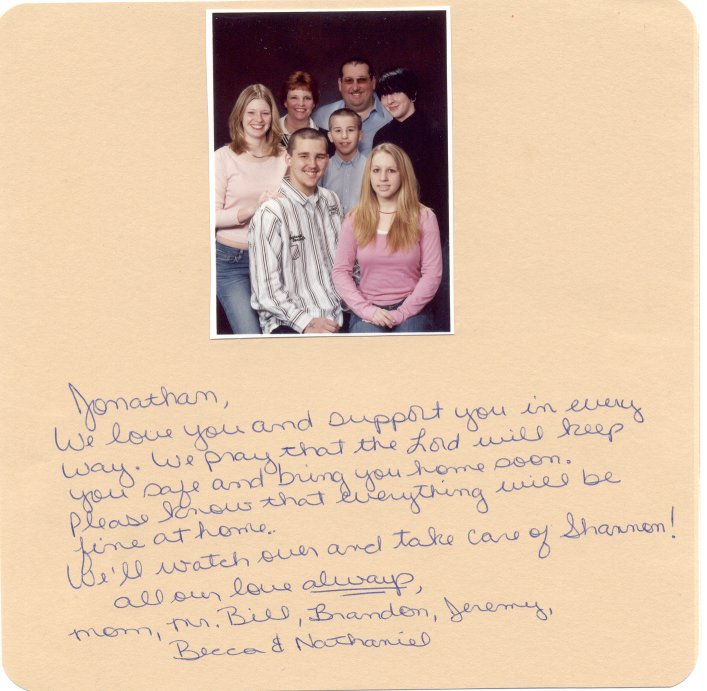 Jonathan,
We love you and support you in every
way. We pray that the Lord will keep
you safe and bring you home soon.
Please know that everything will be
fine at home.
We'll watch over and take care of Shannon!
all our love always,
mom, mr. Bill, Brandon, Jeremy,
Becca & Nathaniel